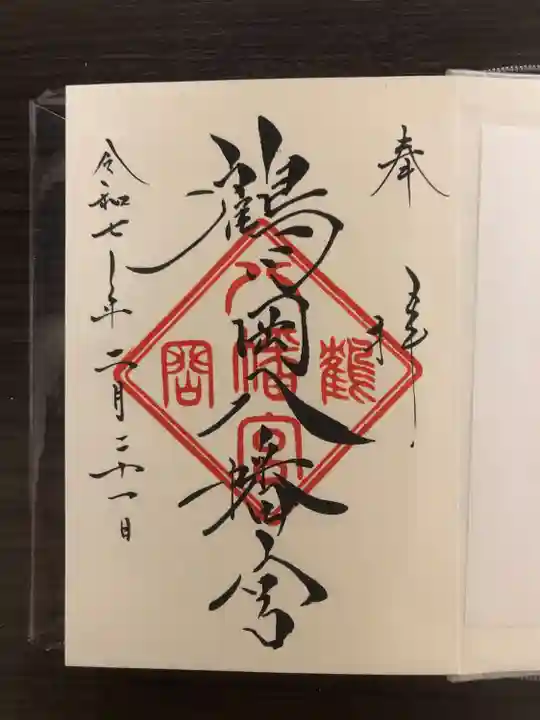 奉拝
鶴岡八幡宮
令和七年二月二十一日
鶴
岡
八幡宮